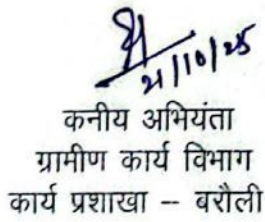 21/10/25
कनीय अभियंता
ग्रामीण कार्य विभाग
कार्य प्रशाखा – बरौली